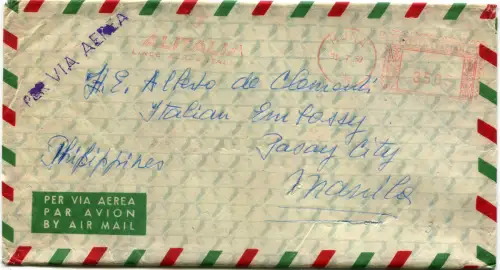 PER VIA AEREA
ALITALIA
H.E. Alberto de Clementi
Italian Embassy.
Pasay City
Philippines
Manilla
PER VIA AEREA
PAR AVION
BY AIR MAIL